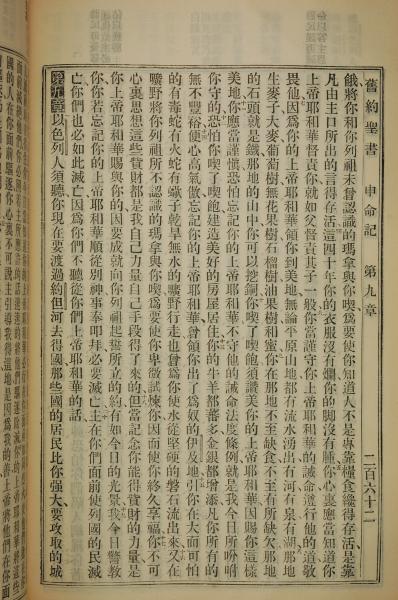 舊約聖書 申命記 第九章 二百六十二
餓將你和你列祖未曾認識的瑪拿與你喫爲要使你知道人不是專靠糧食纔得存活是靠
凡由主口所出的言得存活這四十年你的衣服沒有爛你的脚沒有腫你心裏應當知道你
上帝耶和華督責你就如父督責其子一般你當謹守你上帝耶和華的誡命遵行他的道敬
畏他因爲你的上帝耶和華領你到美地無論平原山地都有流水湧出有河有泉有湖那地
生麥子大麥葡萄樹無花果樹石榴樹油果樹和蜜你在那地不至缺食不至有所缺欠那地
的石頭就是鐵那地的山中你可以挖銅你喫了喫飽須讚美你的上帝耶和華因賜你這樣
美地你應當謹愼恐怕你忘記你的上帝耶和華不守他的誡命法度條例就是我今日所吩咐
你守的恐怕你喫了喫飽建造美好的房屋居住你的牛羊都蕃多金銀都增添凡你所有的
無不豐裕便心高氣傲忘記你的上帝耶和華曾領你出了爲奴的伊及地引你在大而可怕
的有毒蛇有火蛇有蠍子乾旱無水的曠野行走也曾爲你使水從堅硬的磐石流出來又在
曠野將你列祖所不認識的瑪拿與你喫爲要使你卑微試煉你因而使你終久享福你不可
心裏思想這些貲財都是我因自己力量自己手段得了來的但當記念你能得貲財的力量是
你上帝耶和華賜與你的因要成就向你列祖起誓所立的約有如今日的光景我今日警敎
你你若忘記你的上帝耶和華順從別神事奉叩拜必要滅亡主在你們面前使列國的民滅
亡你們也必如此滅亡因爲你們不聽從你們上帝耶和華的話
第九章以色列人須聽你現在要渡過約但河去得國那些國的居民比你强大要攻取的城